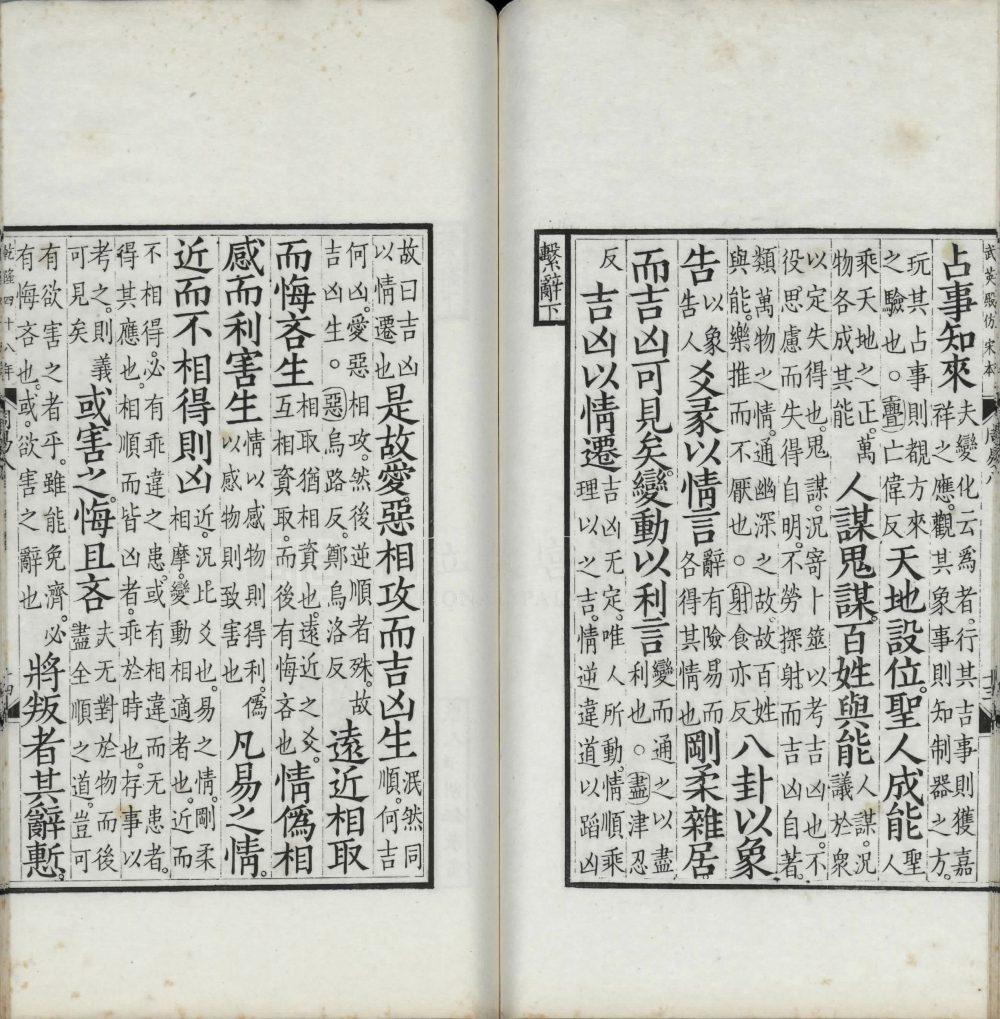 武英殿仿宋本
占事知來
夫變化云爲者。行其吉事則獲嘉
祥之應。觀其象事則知制器之方。
玩其占事則覩方來
之驗也。○亹亡偉反
天地設位。聖人成能
聖
人
乘天地之正。萬
物各成其能
人謀鬼謀。百姓與能
人謀。況
議於衆
以定失得也。鬼謀。況寄卜筮以考吉凶也。不
役思慮而失得自明。不勞探射而吉凶自著。
類萬物之情。通幽深之故。故百姓
與能。樂推而不厭也。○射食亦反
八卦以象
告
以象
告人
爻彖以情言
辭有險易而
各得其情也
剛柔雜居。
而吉凶可見矣。變動以利言
變而通之以盡
利也。○盡津忍
反
吉凶以情遷
吉凶无定。唯人所動。情順乘
理以之吉。情逆違道以蹈凶
繫辭下
故曰吉凶
以情遷也
是故愛惡相攻而吉凶生
泯然同
順。何吉
何凶。愛惡相攻。然後逆順者殊。故
吉凶生。○惡烏路反。鄭烏洛反
遠近相取
而悔吝生
相取猶相資也。遠近之爻。
互相資取。而後有悔吝也。
情僞相
感而利害生
情以感物則得利。僞
以感物則致害也
凡易之情。
近而不相得則凶
近。況比爻也。易之情。剛柔
相摩。變動相適者也。近而
不相得。必有乖違之患。或有相違而无患者。
得其應也。相順而皆凶者。乖於時也。存事以
考之。則義
可見矣
或害之。悔且吝
夫无對於物而後
盡全順之道。豈可
有欲害之者乎。雖能免濟。必
有悔吝也。或。欲害之辭也
將叛者其辭慙。
乾隆四十八年